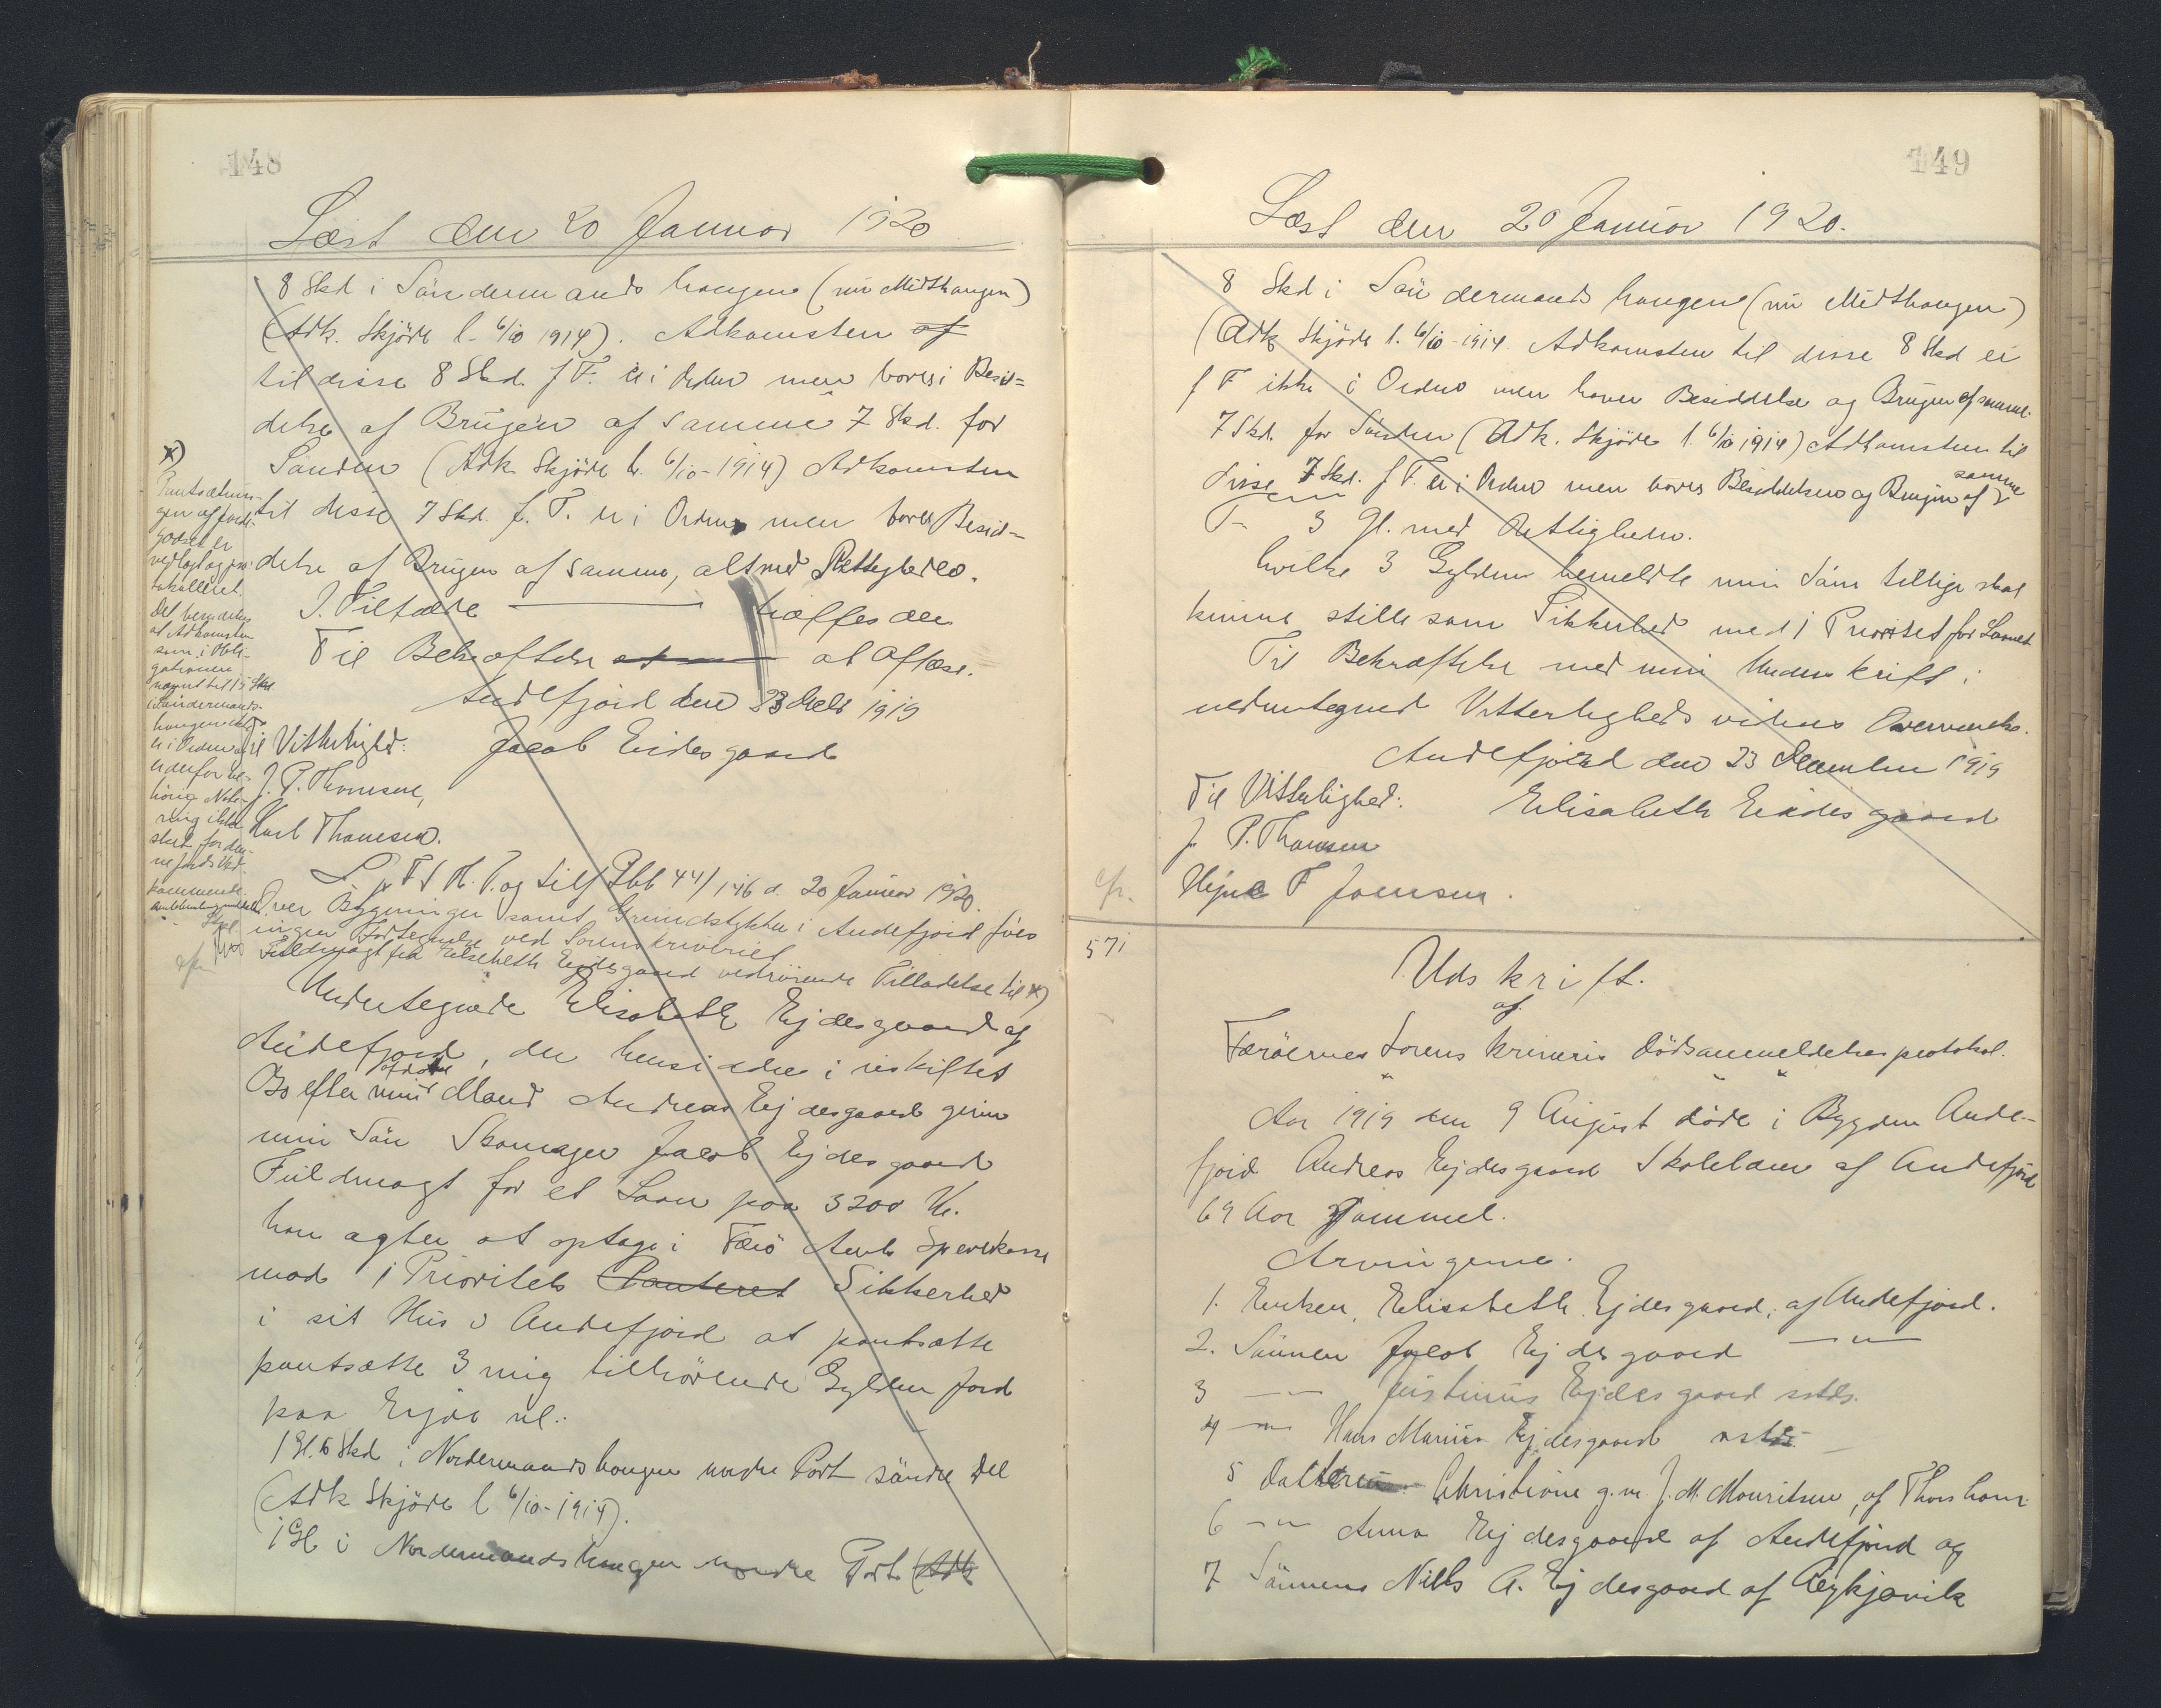 148
Læst den 20 Januar 1920
8 Skd i Sündermands haugen (nu Midthaugen)
(Adk. Skjöde l. 6/10 1914). Adkomsten af
til disse 8 Skd. f F. er i Orden men haves i Besid=
delse af Brugen af samme 7 Skd. for
Sanden (Adk. Skjöde l. 6/10-1914) Adkomsten
til disse 7 Skd. f. F. er i Orden men haves Besid-
delse af Brugen af samme, alt med Rettigheder.
I. Tilfælde træffes den
Til Bekræftelse at aflæse.
Andefjord den 23 Decb 1919
Til Vitterlighed: Jacob Eidesgaard
J. P. Thomsen,
Karl Thomsen.
*)
Pantsætnin-
gen af Jord-
godset er
vedtaget og pro-
tokolleret.
Det bemærkes
at Adkomsten
som i Obli-
gationen
nævnt til 15 Skd
i Sündermands-
haugen ikke
er i Orden og
er derfor be-
hörig Note-
ring ikke
sket for den-
ne Jords Ved-
kommende.
L. p F S M. P. og Tilf Pbl 44/146 d. 20 Januar 1920.
Over Bygninger samt Grundstykke i Andefjord föres
ingen Fortegnelse ved Sorenskriveriet
Fuldmagt fra Elsebeth Ejdesgaard vedrörende Tilladelse til *)
Undertegnede Elisabeth Ejdesgaard af
Andefjord, der hensidder i uskiftet
Bo efter min afdöde Mand Andreas Ejdesgaard giver
min Sön Skomager Jacob Ejdesgaard
Fuldmagt for et Laan paa 3200 Kr.
han agter at optage i Færö Amts Sparekasse
mod 1 Prioritets Panteret Sikkerhed
i sit Hus i Andefjord at pantsætte
pantsætte 3 mig tilhörende Gylden Jord
paa Ejde nl.:
1 Gl. 5 Skd i Nordermandshaugen nordre Part söndre Del
(Adk Skjöde l 6/10-1914).
1 Gl i Nordermandshaugen nordre Part (Adk
149
Læst den 20 Januar 1920.
8 Skd i Sündermands haugen (nu Midthaugen)
(Adk Skjöde l. 6/10-1914 Adkomsten til disse 8 Skd er
f F ikke i Orden men haver Besiddelse og Brugen af samme.
7 Skd. for Sanden (Adk. Skjöde l. 6/10 1914) Adkomsten til
disse 7 Skd. f F. er i Orden men haves Besiddelsen og Brugen af samme
3 Gl. med Rettigheder.
hvilke 3 Gylden bemeldte min Sön tillige skal
kunne stille som Sikkerhed med 1 Prioritet for Laanet
Til Bekræftelse med min Underskrift i
nedentegned Vitterligheds vidners Overværelse.
Andefjord den 23 December 1919
Til Vitterlighed: Elisabeth Eidesgaard
J. P. Thomsen
cfr. Hejne F Joensen.
571
Udskrift.
af
Færöernes Sorenskriveris Dödsanmeldelsesprotokol.
Aar 1919 den 9 August döde i Bygden Ande-
fjord Andreas Ejdesgaard Skolelærer af Andefjord
69 Aar Gammel.
Arvingerne.
1. Enken, Elisabeth Ejdesgaard, af Andefjord.
2. Sönnen Jacob Ejdesgaard — " —
3 — " — Justinus Ejdesgaard sstds.
4 — " — Hans Marius Ejdesgaard sstds.
5 Datteren Christine g. m. J. M. Mouritsen, af Thorshavn
6 — " — Anna Ejdesgaard af Andefjord og
7 Sönnens Niels A. Ejdesgaard af Reykjavik